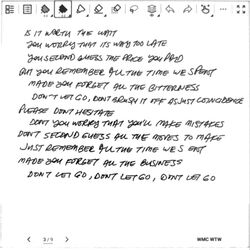 IS IT WORTH THE WAIT
YOU WORRY THAT IT'S WAY TOO LATE
YOU SECOND GUESS THE PRICE YOU PAID
BUT YOU REMEMBER ALL THE TIME WE SPENT
MADE YOU FORGET ALL THE BITTERNESS
DON'T LET GO, DON'T BRUSH IT OFF AS JUST COINCIDENCE
PLEASE DON'T HESITATE
DON'T YOU WORRY THAT YOU'LL MAKE MISTAKES
DON'T SECOND GUESS ALL THE MOVES TO MAKE
JUST REMEMBER ALL THE TIME WE SPENT
MADE YOU FORGET ALL THE BUSINESS
DON'T LET GO, DON'T LET GO, DON'T LET GO
3/9
WMC WTW